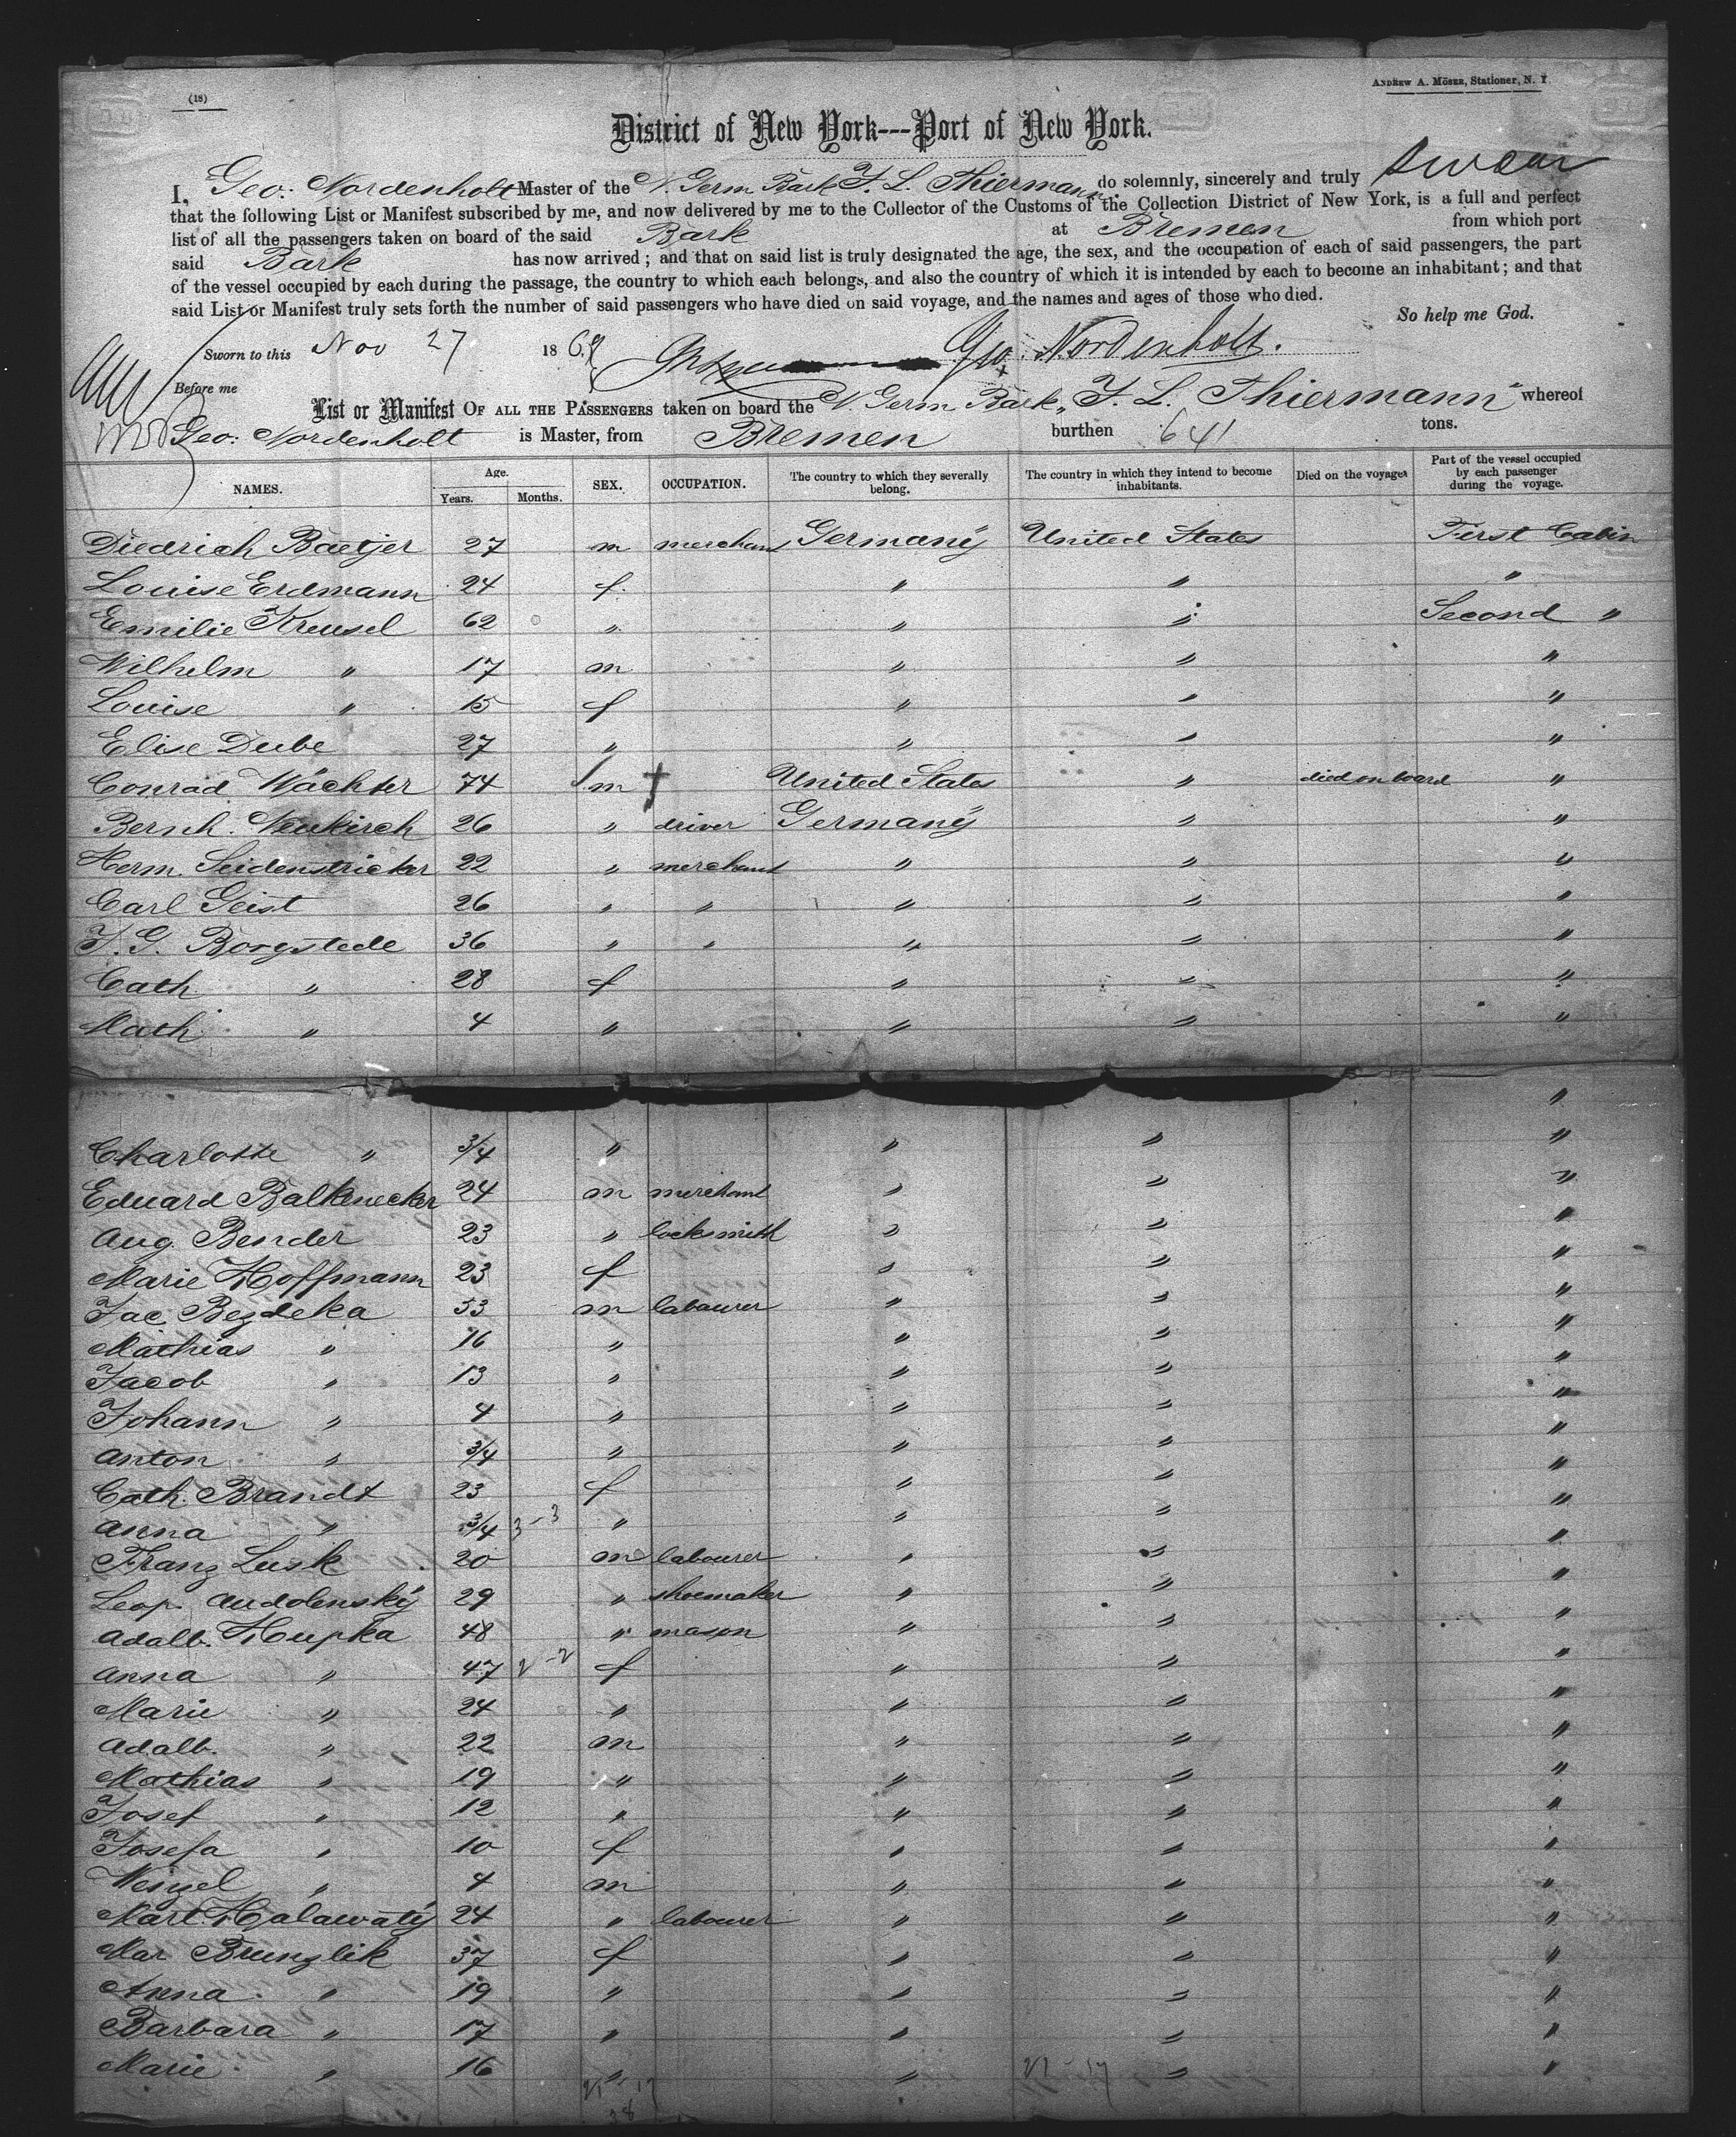 (18)
ANDREW A. MÖSER, Stationer, N. Y.
District of New York---Port of New York.
I, Geo: Nordenholt Master of the N. Germ Bark F. L. Thiermann do solemnly, sincerely and truly swear
that the following List or Manifest subscribed by me, and now delivered by me to the Collector of the Customs of the Collection District of New York, is a full and perfect
list of all the passengers taken on board of the said Bark at Bremen from which port
said Bark has now arrived; and that on said list is truly designated the age, the sex, and the occupation of each of said passengers, the part
of the vessel occupied by each during the passage, the country to which each belongs, and also the country of which it is intended by each to become an inhabitant; and that
said List or Manifest truly sets forth the number of said passengers who have died on said voyage, and the names and ages of those who died.
So help me God.
Sworn to this Nov 27 1869 Geo. Nordenholt.
Before me
List or Manifest OF ALL THE PASSENGERS taken on board the N. Germ Bark „F. L. Thiermann" whereof
Geo: Nordenholt is Master, from Bremen burthen 641 tons.
NAMES. Age. Years. Months. SEX. OCCUPATION. The country to which they severally belong. The country in which they intend to become inhabitants. Died on the voyage Part of the vessel occupied by each passenger during the voyage.
Diedrich Baetjer 27 m merchant Germany United States First Cabin
Louise Erdmann 24 f. " " "
Emilie Kreusel 62 " " " Second "
Wilhelm " 17 m " " "
Louise " 15 f " " "
Elise Dube 27 " " " "
Conrad Wächter 74 m † United States " died on board "
Bernh. Neukirch 26 " driver Germany " "
Herm. Seidenstricker 22 " merchant " " "
Carl Geist 26 " " " " "
F. G. Borgstede 36 " " " " "
Cath " 28 f " " "
Math " 4 " " " "
"
Charlotte " 3/4 " " " "
Eduard Balkenecker 24 m merchant " " "
Aug. Bender 23 " locksmith " " "
Marie Hoffmann 23 f " " "
Jac. Bezdeka 53 m labourer " " "
Mathias " 16 " " " "
Jacob " 13 " " " "
Johann " 4 " " " "
Anton " 3/4 " " " "
Cath. Brandt 23 f " " "
Anna " 3/4 3-3 " " " "
Franz Lusk 20 m labourer " " "
Leop. Audolensky 29 " shoemaker " " "
Adalb. Hupka 48 " mason " " "
Anna " 47 2-2 f " " "
Marie " 24 " " " "
Adalb. " 22 m " " "
Mathias " 19 " " " "
Josef " 12 " " " "
Josefa " 10 f " " "
Wenzel " 4 m " " "
Mart. Halawaty 24 " labourer " " "
Mar Brunzlik 37 f " " "
Anna " 19 " " " "
Barbara " 17 " " " "
Marie " 16 " " " "
21-17 21-17
38